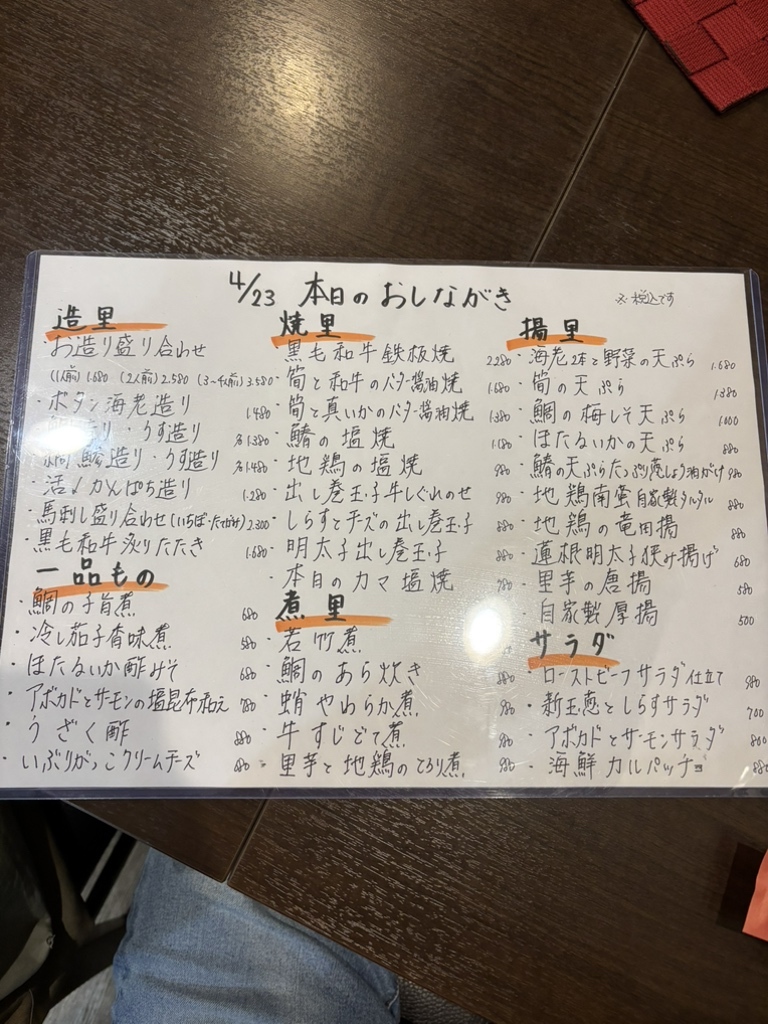 4/23 本日のおしながき
※税込です
造里
お造り盛り合わせ
(1人前) 1.680 (2人前) 2.580 (3〜4人前) 3.580
・ボタン海老造り 1.480
造り・うす造り 各1.380
鯛 鰭造り・うす造り 各1.480
・活〆かんぱち造り 1.280
・馬刺し盛り合わせ(いちぼ・たてがみ) 2.300
・黒毛和牛炙りたたき 1.680
一品もの
・鯛の子旨煮 680
・冷し茄子香味煮 580
・ほたるいか酢みそ 680
・アボカドとサーモンの塩昆布和え 780
・うざく酢 880
・いぶりがっこクリームチーズ 680
焼里
黒毛和牛鉄板焼 2.280
・筍と和牛のバター醤油焼 1.680
・筍と真いかのバター醤油焼 1.380
・鰆の塩焼 1.180
・地鶏の塩焼 980
・出し巻玉子牛しぐれのせ 980
・しらすとチーズの出し巻玉子 880
・明太子出し巻玉子 880
・本日のカマ塩焼 780
煮里
・若竹煮
・鯛のあら炊き 880
・蛸やわらか煮 980
・牛すじどて煮 980
・里芋と地鶏のとろり煮 980
揚里
・海老2本と野菜の天ぷら 1.680
・筍の天ぷら 1380
・鯛の梅しそ天ぷら 1.000
・ほたるいかの天ぷら 880
・鰆の天ぷらたっぷり葱しょう油がけ 980
・地鶏南蛮自家製タルタル 880
・地鶏の竜田揚 880
・蓮根明太子挟み揚げ 680
・里芋の唐揚 580
・自家製厚揚 500
サラダ
・ローストビーフサラダ仕立て 980
・新玉葱としらすサラダ 700
・アボカドとサーモンサラダ 800
・海鮮カルパッチョ 880